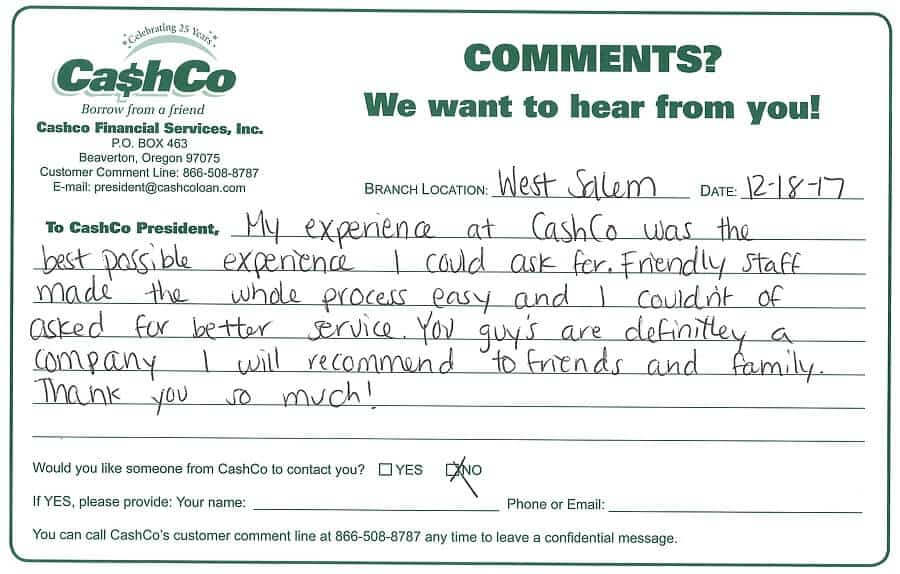 Celebrating 25 Years
Ca$hCo
Borrow from a friend
Cashco Financial Services, Inc.
P.O. BOX 463
Beaverton, Oregon 97075
Customer Comment Line: 866-508-8787
E-mail: president@cashcoloan.com
COMMENTS?
We want to hear from you!
BRANCH LOCATION: West Salem DATE: 12-18-17
To CashCo President, My experience at CashCo was the
best possible experience I could ask for. Friendly staff
made the whole process easy and I couldn't of
asked for better service. You guy's are definitley a
company I will recommend to friends and family.
Thank you so much!
Would you like someone from CashCo to contact you? ☐ YES ☒ NO
If YES, please provide: Your name: Phone or Email:
You can call CashCo's customer comment line at 866-508-8787 any time to leave a confidential message.